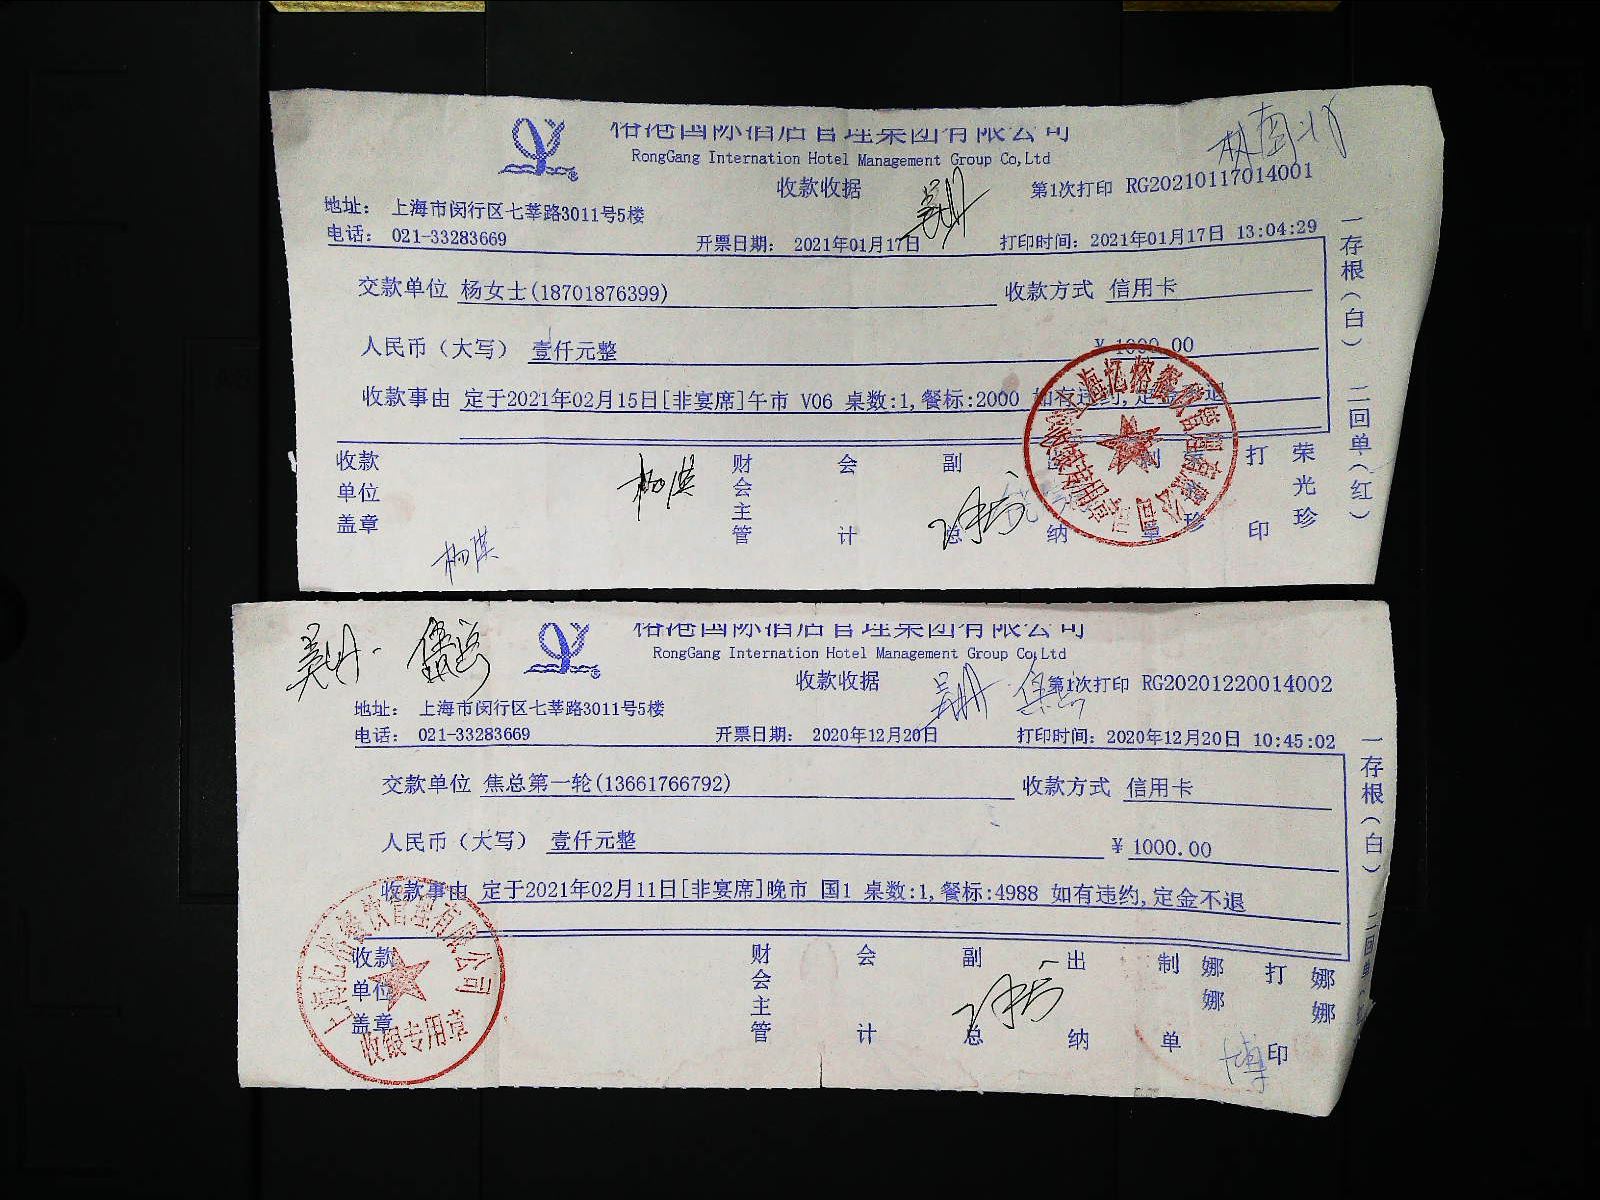 榕港国际酒店管理集团有限公司
RongGang Internation Hotel Management Group Co,Ltd
收款收据
第1次打印 RG20210117014001
地址： 上海市闵行区七莘路3011号5楼
电话： 021-33283669
开票日期： 2021年01月17日
打印时间：2021年01月17日 13:04:29
交款单位 杨女士(18701876399)
收款方式 信用卡
人民币（大写） 壹仟元整
¥ 1000.00
收款事由 定于2021年02月15日[非宴席]午市 V06 桌数:1,餐标:2000 如有违约,定金不退
收款单位盖章
杨淇
杨淇
财会主管
会计
副总
出纳
制单
荣光珍
打印
荣光珍
一存根（白） 二回单（红）
吴丹
榕港国际酒店管理集团有限公司
RongGang Internation Hotel Management Group Co,Ltd
收款收据
吴丹
第1次打印 RG20201220014002
地址： 上海市闵行区七莘路3011号5楼
电话： 021-33283669
开票日期： 2020年12月20日
打印时间：2020年12月20日 10:45:02
交款单位 焦总第一轮(13661766792)
收款方式 信用卡
人民币（大写） 壹仟元整
¥ 1000.00
收款事由 定于2021年02月11日[非宴席]晚市 国1 桌数:1,餐标:4988 如有违约,定金不退
收款单位盖章
收银专用章
财会主管
会计
副总
出纳
制单
娜娜
打印
娜娜
一存根（白）